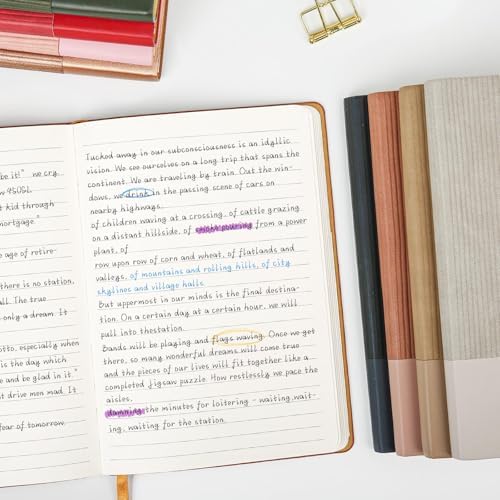 be it!" we cry.
w 450SL
t kid through
mortgage."
e age of retire-
there is no station,
all. The true
only a dream. It
otto, especially when
is the day which
e and be glad in it."
t drive men mad. It
fear of tomorrow.
Tucked away in our subconsciousness is an idyllic
vision. We see ourselves on a long trip that spans the
continent. We are traveling by train. Out the win-
dows, we drink in the passing scene of cars on
nearby highways,
of children waving at a crossing, of cattle grazing
on a distant hillside, of smoke pouring from a power
plant, of
row upon row of corn and wheat, of flatlands and
valleys, of mountains and rolling hills, of city
skylines and village halls.
But uppermost in our minds is the final destina-
tion. On a certain day at a certain hour, we will
pull into thestation.
Bands will be playing and flags waving. Once we get
there, so many wonderful dreams will come true
and the pieces of our lives will fit together like a
completed jigsaw puzzle. How restlessly we pace the
aisles,
damning the minutes for loitering - waiting,wait-
ing, waiting for the station.